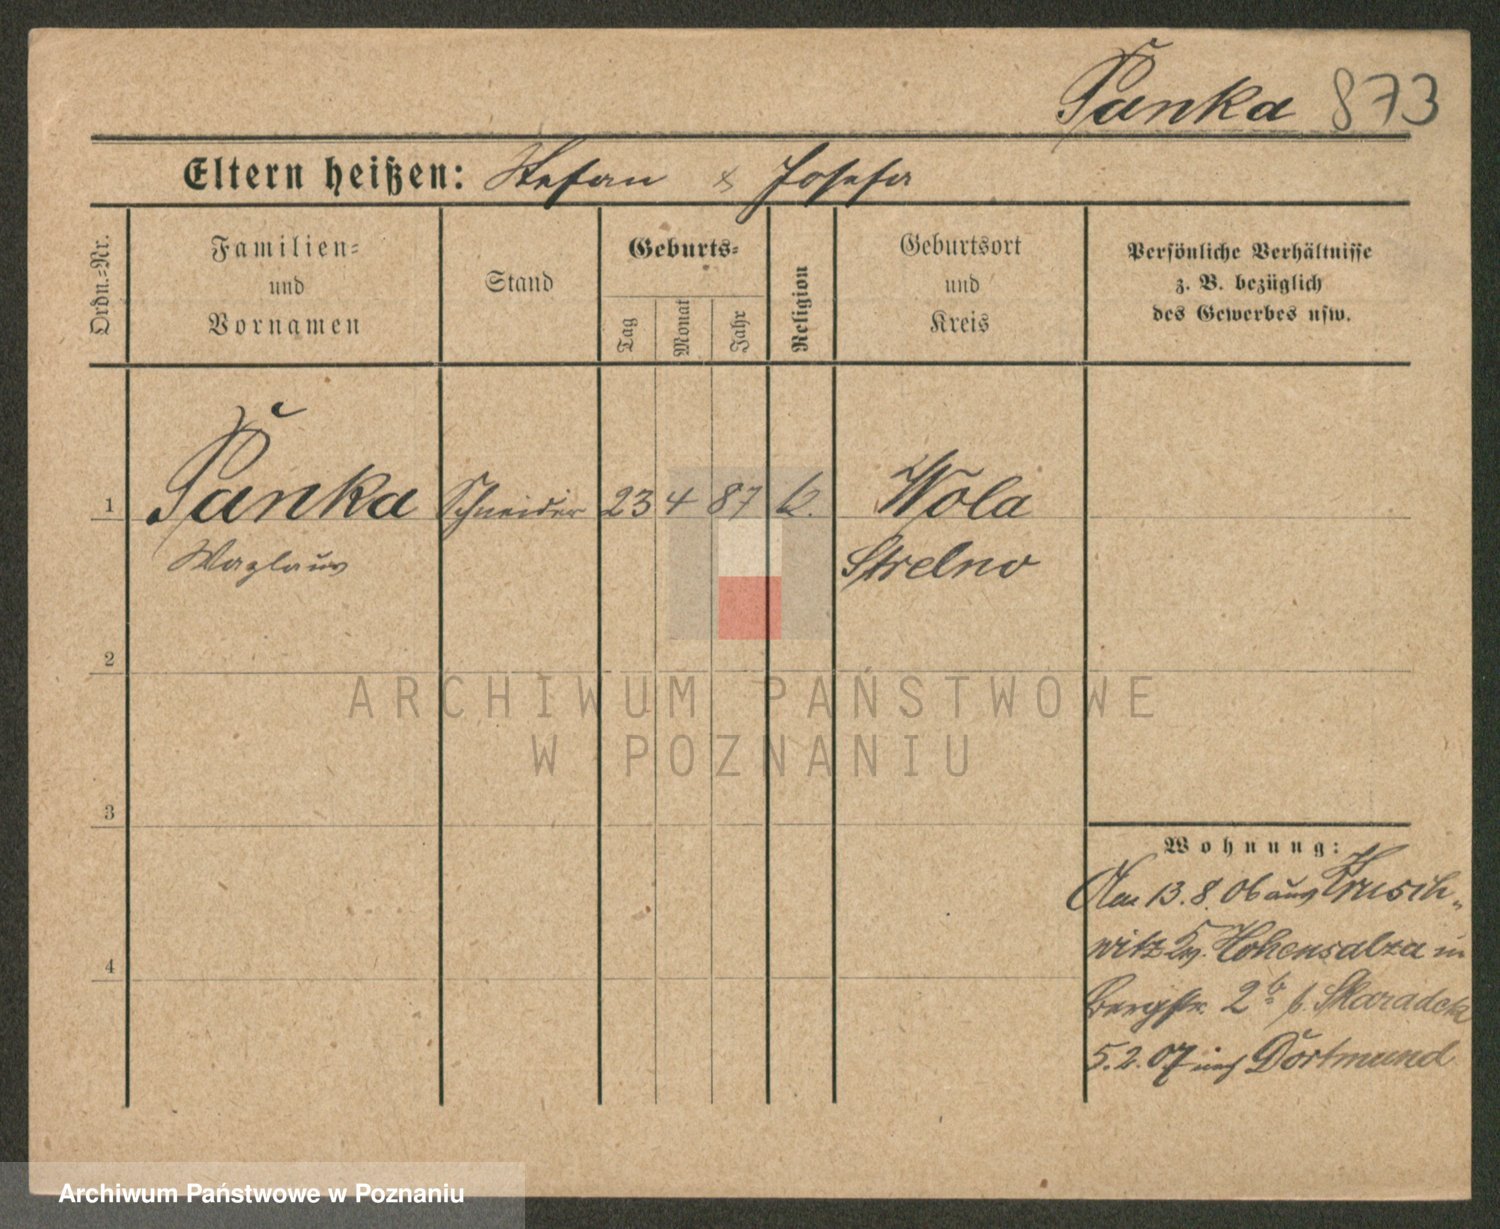 Panka 873
Eltern heißen: Stefan & Josefa
Ordn.=Nr.
Familien=
und
Vornamen
Stand
Geburts=
Tag
Monat
Jahr
Religion
Geburtsort
und
Kreis
Persönliche Verhältnisse
z. B. bezüglich
des Gewerbes usw.
1 Panka Schneider 23 4 87 k. Wola
Waclaus Strelno
2
ARCHIWUM PAŃSTWOWE
W POZNANIU
3
Wohnung:
Am 13.8.06 aus Krusch-
witz Kr. Hohensalza in
4
Bergstr. 2 b. Skaradek
5.2.07 nach Dortmund
Archiwum Państwowe w Poznaniu